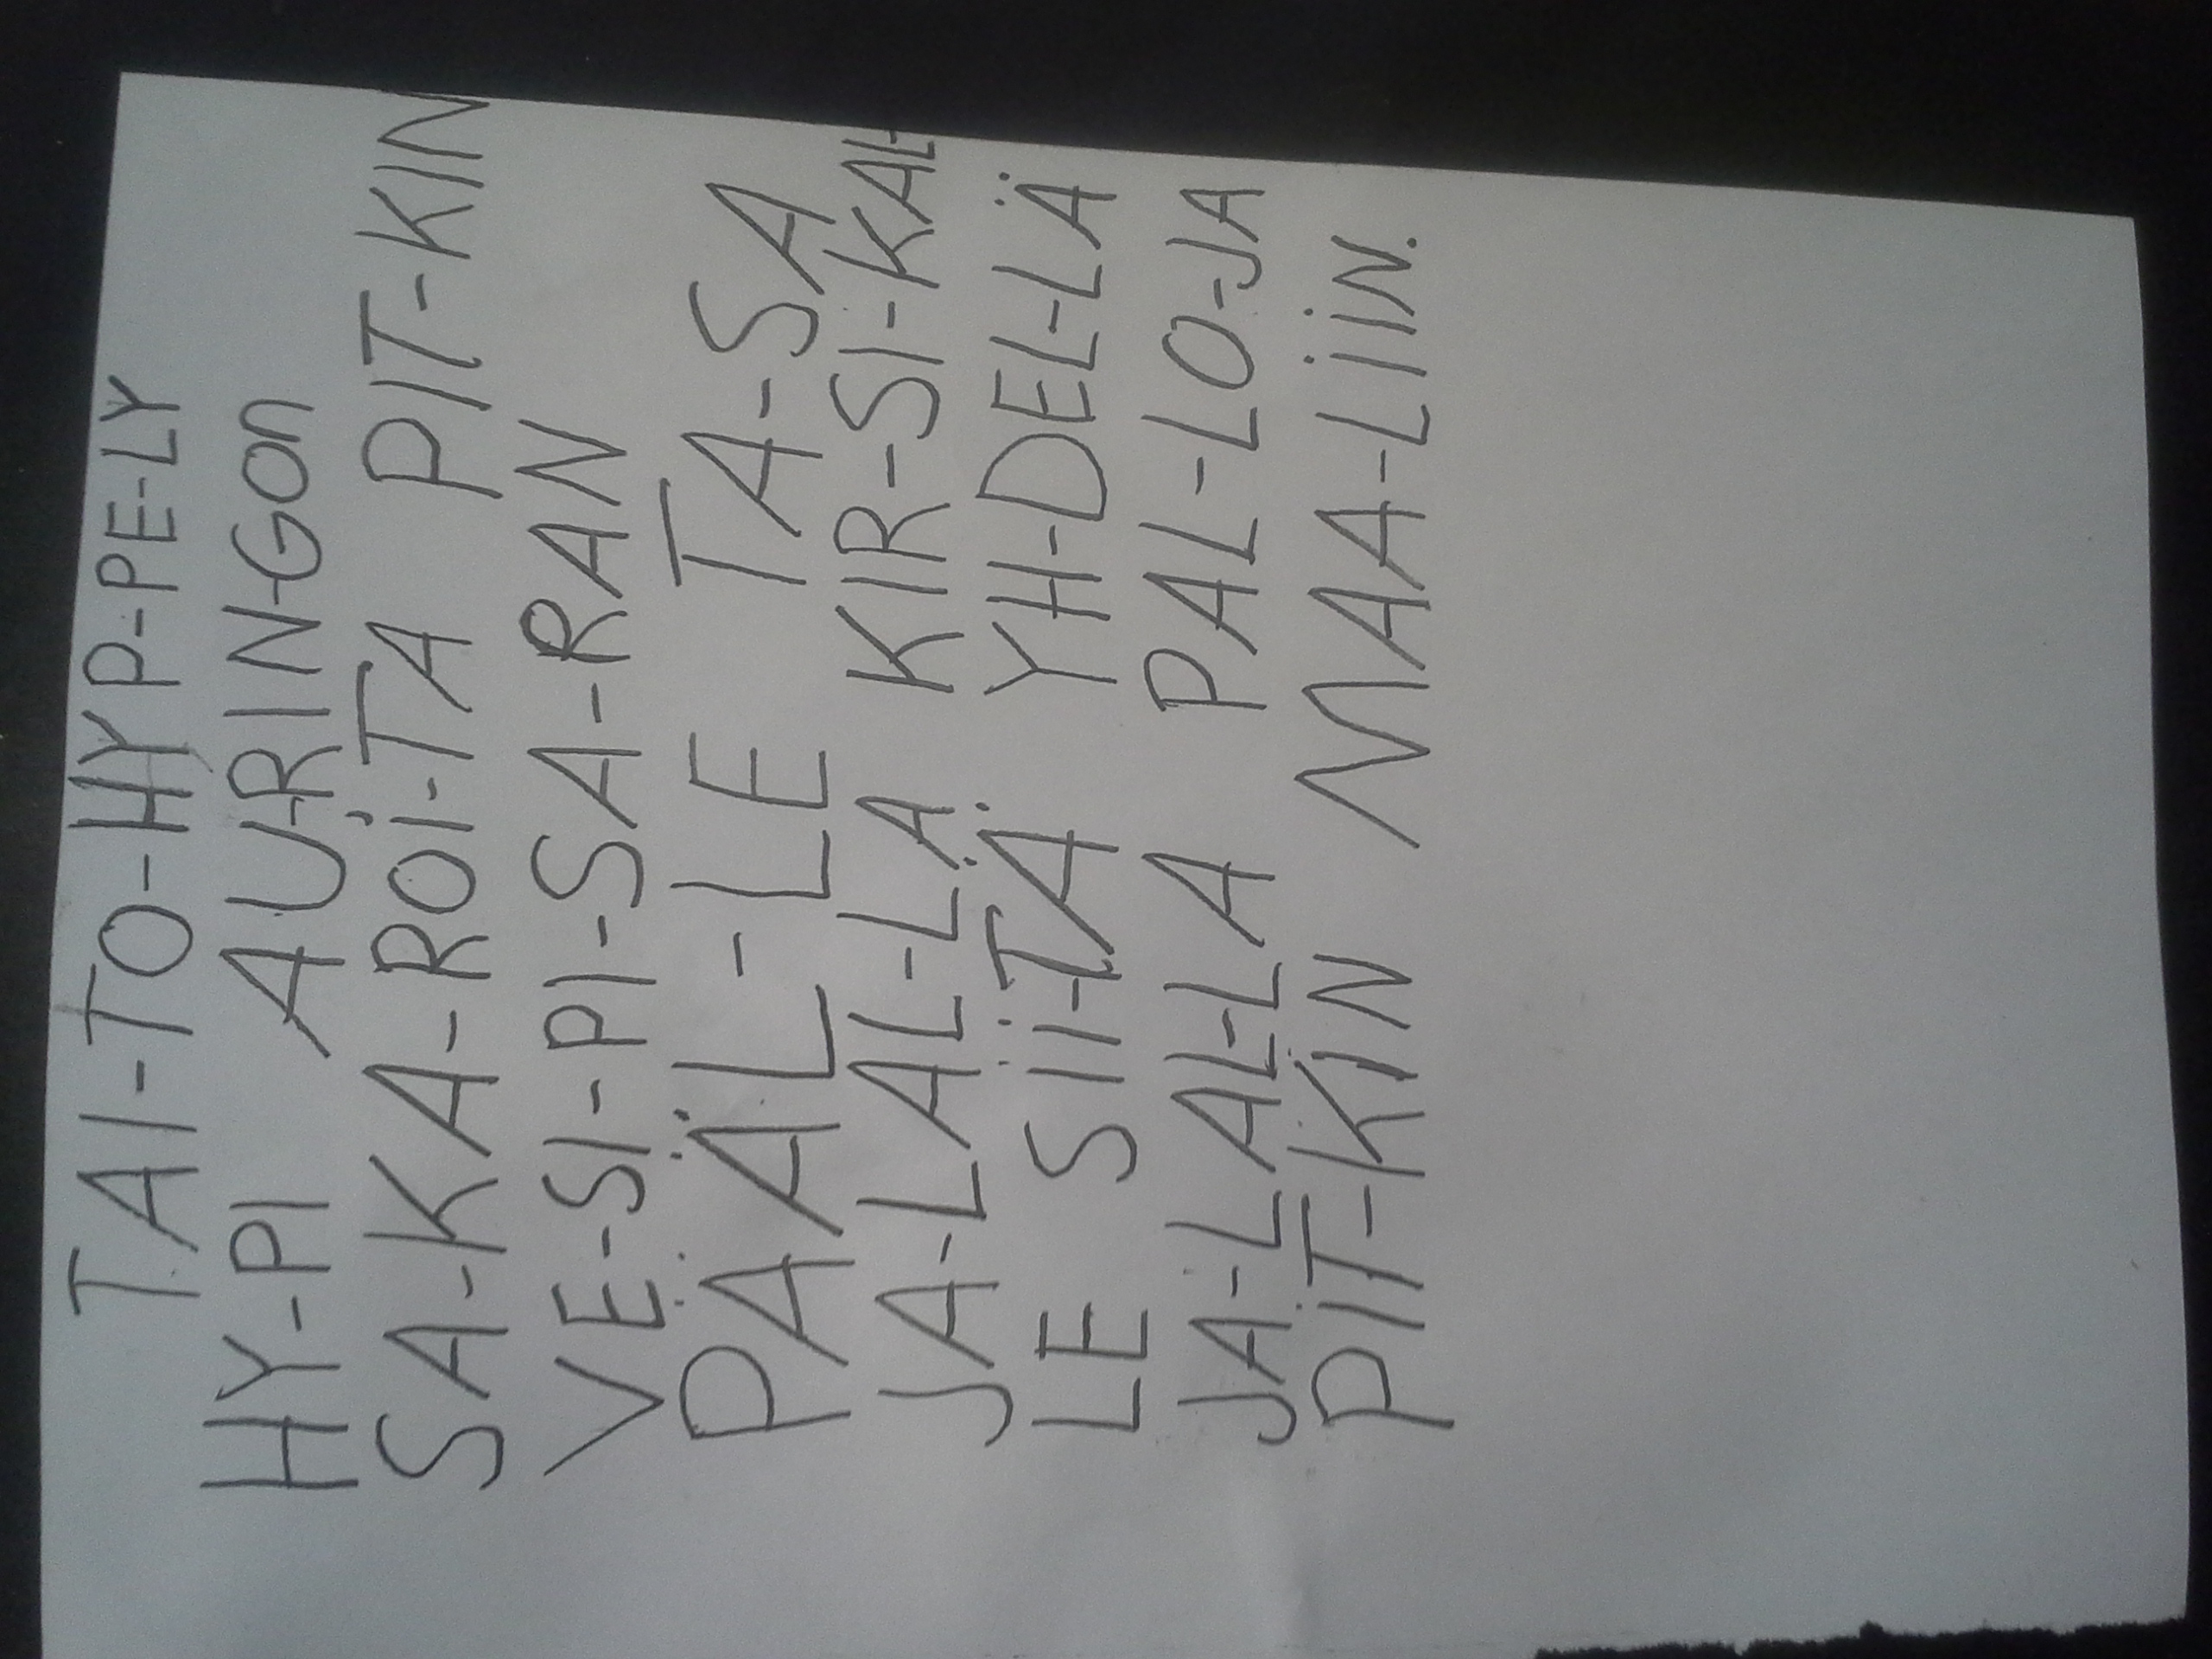 TAI-TO-HYP-PE-LY
HY-PI AU-RIN-GON
SA-KA-ROI-TA PIT-KIN
VE-SI-PI-SA-RAN
PÄÄL-LE TA-SA
JA-LAL-LA KIR-SI-KAL-
LE SII-TÄ YH-DEL-LÄ
JA-LAL-LA PAL-LO-JA
PIT-KIN MAA-LIIN.